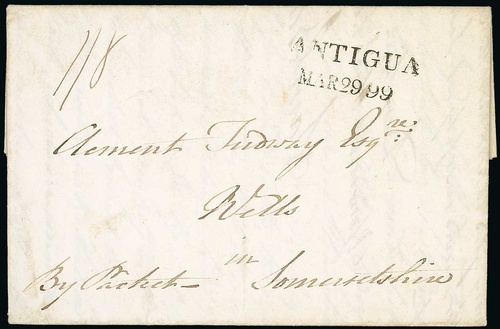 1/8
ANTIGUA
MAR 29 99
Clement Tudway Esqre:
Wells
in
By Packet- Somersetshire